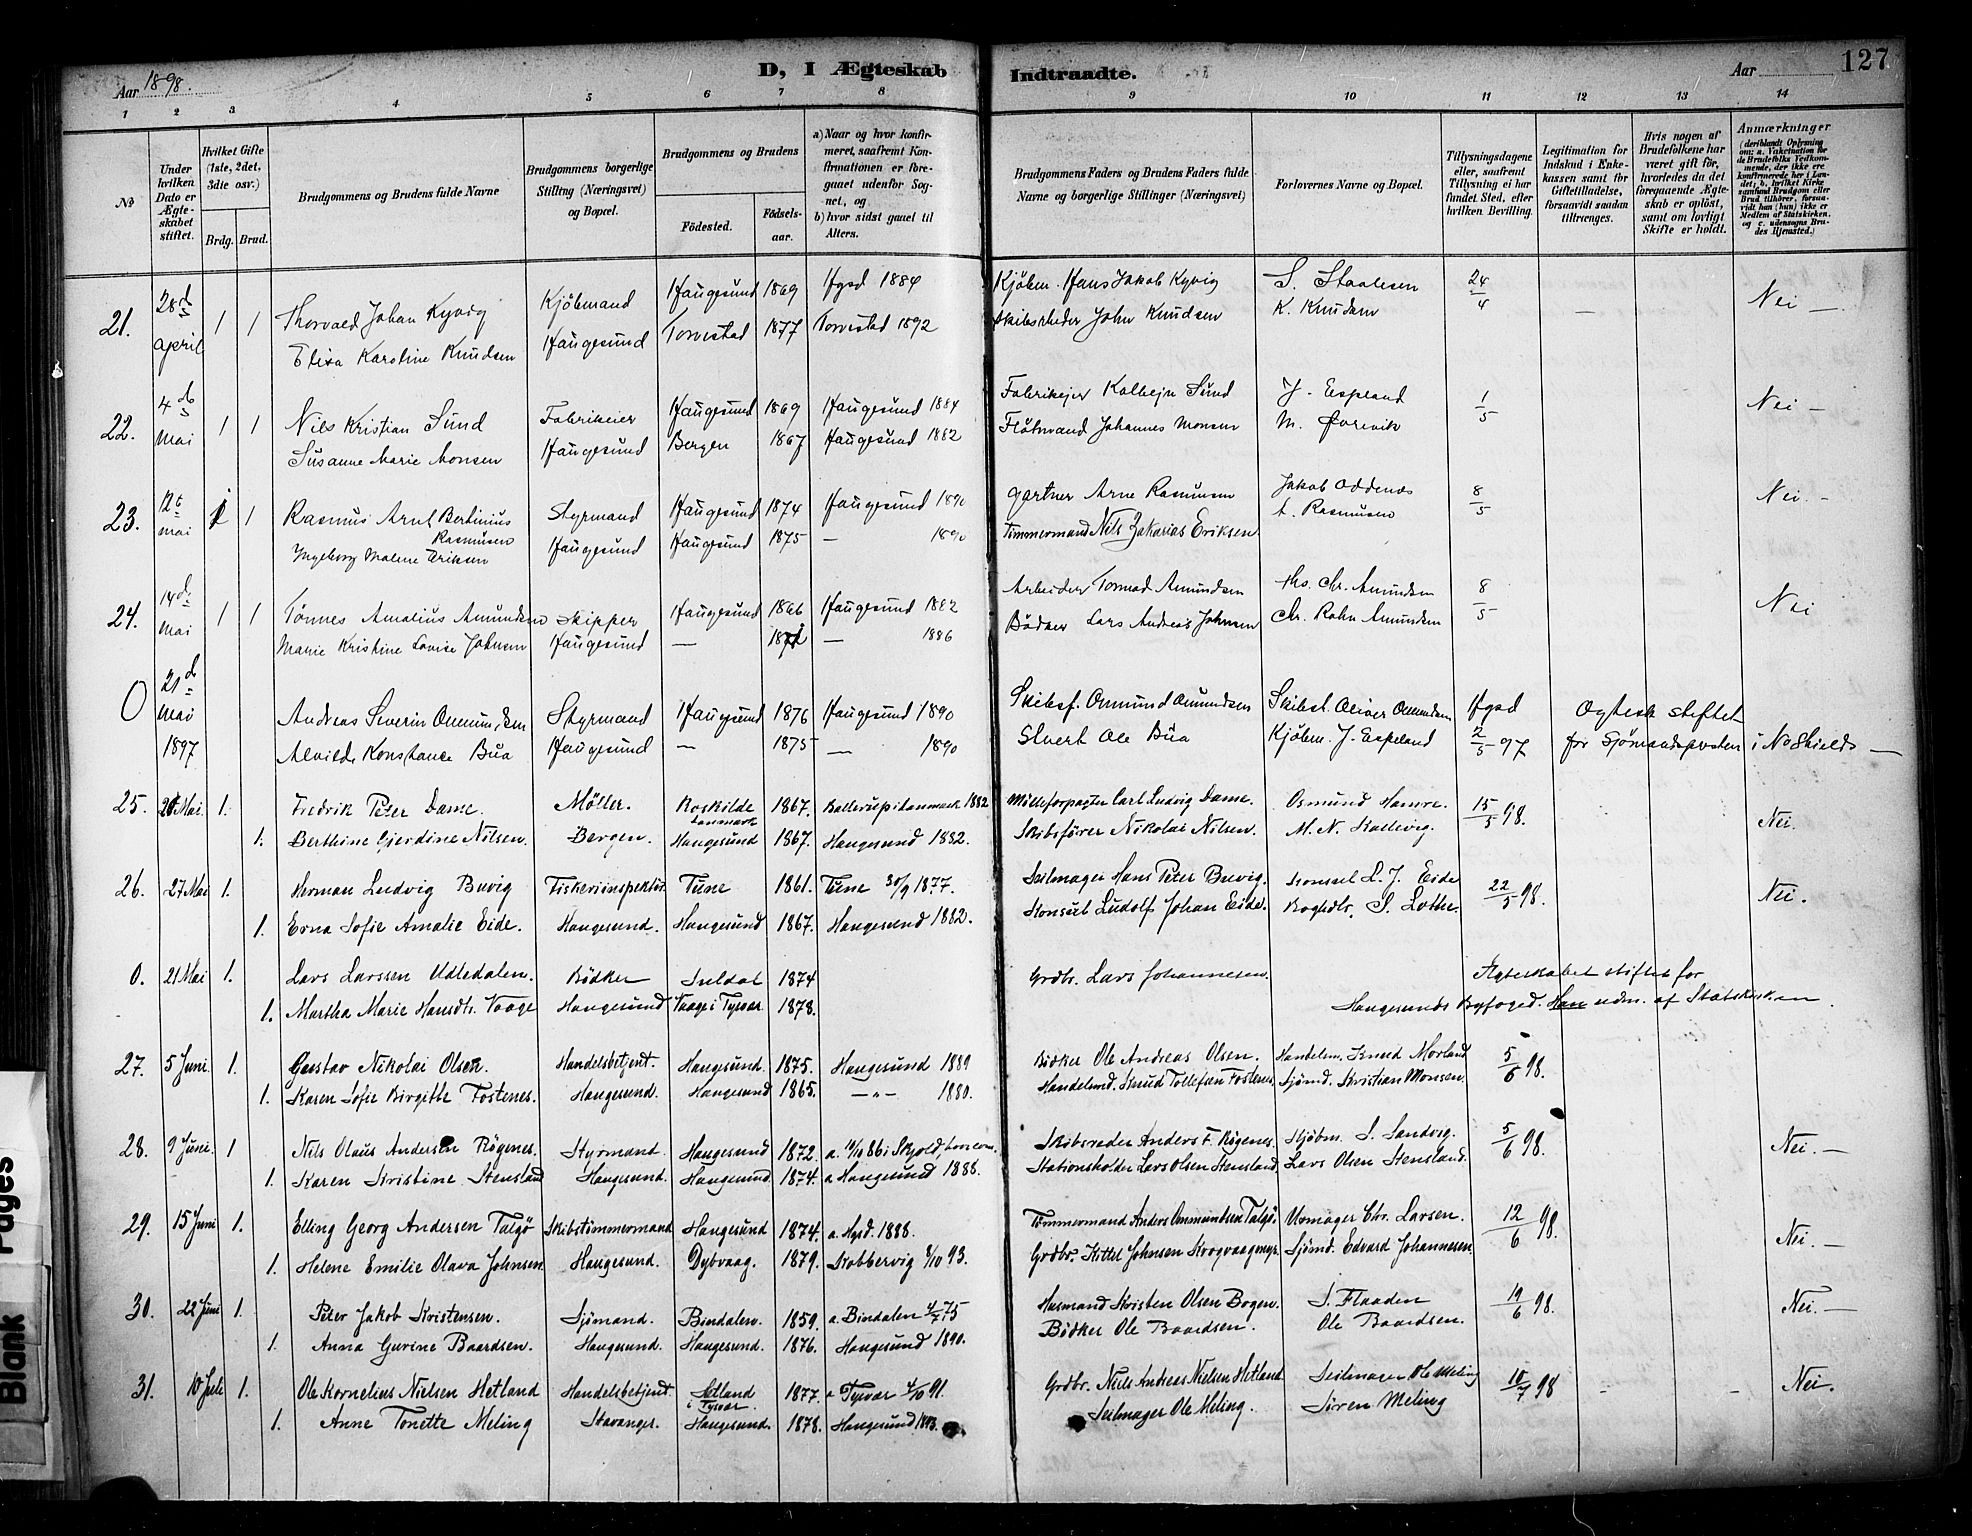 Aar 1898.
D, I Ægteskab Indtraadte.
Aar 127
1 2 3 4 5 6 7 8 9 10 11 12 13 14
No
Under hvilken Dato er Ægteskabet stiftet.
Hvilket Gifte (1ste, 2det, 3die osv.)
Brdg. Brud.
Brudgommens og Brudens fulde Navne
Brudgommens borgerlige Stilling (Næringsvei) og Bopæl.
Brudgommens og Brudens
Fødested. Fødselsaar.
a) Naar og hvor konfirmeret, saafremt Konfirmationen er foregaaet udenfor Sognet, og
b) hvor sidst gaaet til Alters.
Brudgommens Faders og Brudens Faders fulde Navne og borgerlige Stillinger (Næringsvei)
Forlovernes Navne og Bopæl.
Tillysningsdagene eller, saafremt Tillysning ei har fundet Sted, efter hvilken Bevilling.
Legitimation for Indskud i Enkekassen samt for Giftetilladelse, forsaavidt saadan tiltrænges.
Hvis nogen af Brudefolkene har været gift før, hvorledes da det foregaaende Ægteskab er opløst, samt om lovligt Skifte er holdt.
Anmærkninger (deriblandt Oplysning om: a. Vakcination for de Brudefolks Vedkommende, der ikke ere konfirmerede her i Landet; b. hvilket Kirkesamfund Brudgom eller Brud tilhører, forsaavidt han (hun) ikke er Medlem af Statskirken, og c. udensogns Brudes Hjemsted.)
21. 28d april 1 1 Thorvald Johan Kyvig Kjøbmand Haugesund 1869 Hgsd 1884 Kjøbm. Hans Jakob Kyvig S. Staalesen 24/4 — Nei —
Elisa Karoline Knudsen Haugesund Torvestad 1877 Torvestad 1892 Skibsrheder John Knudsen K. Knudsen
22. 4de mai 1 1 Nils Kristian Sund Fabrikeier Haugesund 1869 Haugesund 1884 Fabrikejer Kolbejn Sund J. Espeland 1/5 Nei —
Susanne Marie Monsen Haugesund Bergen 1867 Haugesund 1882 Fløtmand Johannes Monsen M. Førevik
23. 12te mai 1 1 Rasmus Arnt Bertinius Rasmusen Styrmand Haugesund 1874 Haugesund 1890 Gartner Arne Rasmusen Jakob Oddenes 8/5 Nei. —
Ingeborg Malene Eriksen Haugesund Haugesund 1875 — 1890 Timmermand Nils Zakarias Eriksen A. Rasmusen
24. 14de mai 1 1 Tønnes Amalius Amundsen Skipper Haugesund 1866 Haugesund 1882 Arbeider Tormod Amundsen Ths. Chr. Amundsen 8/5 Nei
Marie Kristine Lovise Johnsen Haugesund — 1871 — 1886 Bødker Lars Andreas Johnsen Chr. Rahn Amundsen
0 21de mai 1897 Andreas Severin Omundsen Styrmand Haugesund 1876 Haugesund 1890 Skibsf. Omund Omundsen Skibst. Oliver Omundsen Hgsd 2/5 97 Ægtesk stiftet
Alvilde Konstance Bua Haugesund — 1875 — 1890 Sivert Ole Bua Kjøbm. J. Espeland for Sjømandspresten i No Shields —
25. 20 Mai. 1. Fredrik Peter Dame. Møller. Roskilde Danmark 1867. Ballerup i Danmark 1882 Mølleforpagter Carl Ludvig Dame. Osmund Hamre. 15/5 98. Nei.
1. Berthine Gjerdine Nilsen. Bergen. Haugesund 1867. Haugesund 1882. Skibsfører Nikolai Nilsen. M. N. Kallevig.
26. 27 Mai 1. Herman Ludvig Buvig Fiskeriinspektør. Tune 1861. Tune 30/9 1877. Seilmager Hans Peter Buvig. Konsul L. J. Eide 22/5 98. Nei.
1. Erna Sofie Amalie Eide. Haugesund. Haugesund 1867. Haugesund 1882. Konsul Ludolf Johan Eide. Boghdlr. S. Lothe.
0. 21 Mai 1. Lars Larssen Udledalen. Bødker Suldal 1874 Grdbr. Lars Johannesen. Ægteskabet stiftet for
1. Martha Marie Hansdtr. Vaage Haugesund Vaage i Tysvær 1878. Haugesunds Byfoged. Han udm. af Statskirken.
27. 5 Juni. 1. Gustav Nikolai Olsen. Handelsbetjent. Haugesund. 1875. Haugesund 1889 Bødker Ole Andreas Olsen. Handelsm. Knud Morland 5/6 98.
1. Karen Sofie Birgitte Fostenes. Haugesund. Haugesund 1865. —"— 1880. Handelsmd. Knud Tollefsen Fostenes. Sjømd. Kristian Monsen.
28. 9 Juni. 1 Nils Olaus Andersen Røgenes. Styrmand. Haugesund 1872. a. 10/10 86 i Skjold, Skibsreder Anders F. Røgenes. Kjøbm. S. Sandvig. 5/6 98. Nei. —
1. Karen Kristine Stensland Haugesund. Haugesund. 1874. a Haugesund 1888. Stationsholder Lars Olsen Stensland. Lars Olsen Stensland.
29. 15 Juni 1. Elling Georg Andersen Talgø Skibstømmermand Haugesund 1874. a. Hgsd. 1888. Tømmermand Anders Ommundsen Talgø. Urmager Chr. Larsen. 12/6 98. Nei. —
1. Helene Emilie Olava Johnsen Haugesund. Dybvaag. 1879. Kobbervig 8/10 93. Grdbr. Kittel Johnsen Krogvaagmyr. Sjømd. Edvard Johannesen.
30. 22 Juni 1. Peter Jakob Kristensen. Sjømand. Bindalen. 1859. a. Bindalen 4/7 75 Husmand Kristen Olsen Bogen. S. Flaaden 19/6 98. Nei. —
1. Anna Gurine Baardsen. Haugesund. Haugesund. 1876. Haugesund 1890. Bødker Ole Baardsen. Ole Baardsen.
31. 10 Juli 1. Ole Kornelius Nielsen Hetland Handelsbetjent. Hetland i Tysvær. 1877. a Tysvær 4/10 91. Grdbr. Niels Andreas Nielsen Hetland Seilmager Ole Meling 10/7 98 - - Nei.
1. Anne Tonette Meling Stavanger. Haugesund. 1878. Haugesund 1893. Seilmager Ole Meling. Søren Meling
Blank Pages